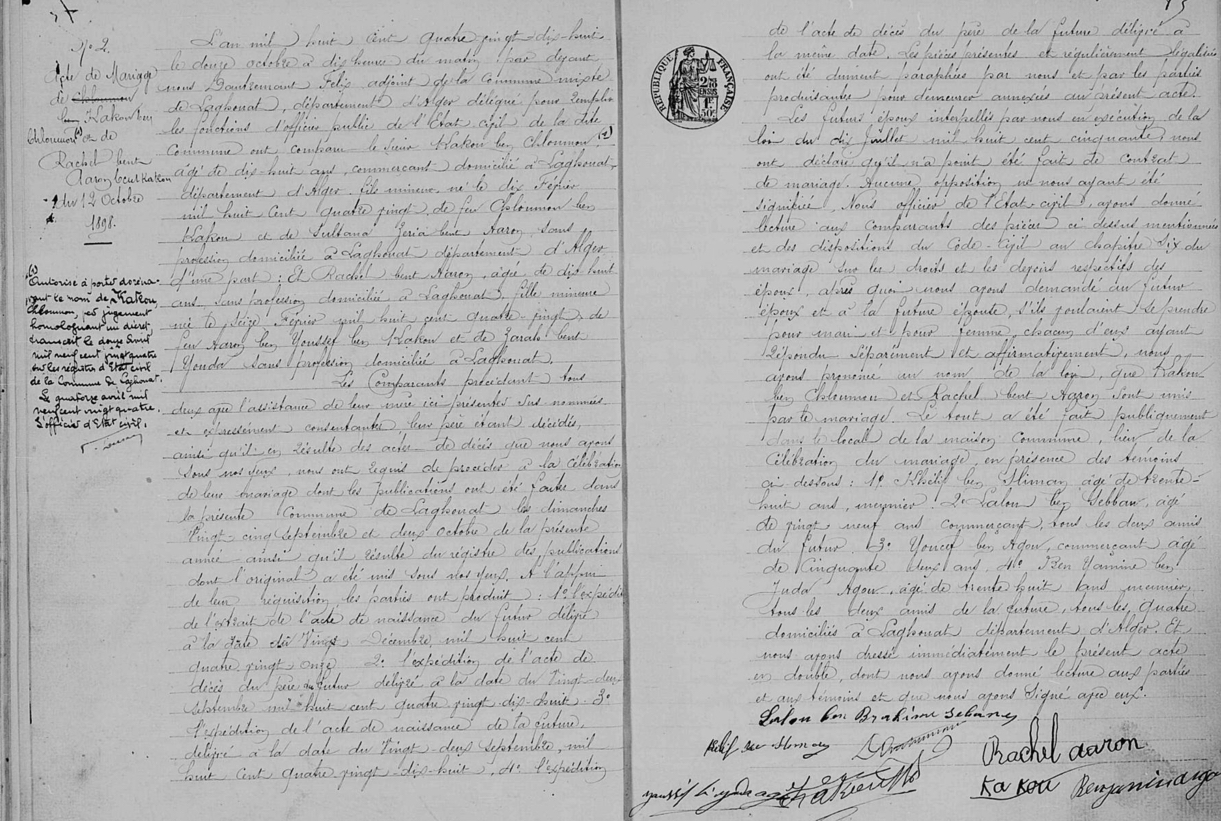 N° 2.
Acte de Mariage
de Chloumou
ben Kakou ben
Chloumou (1) et de
Rachel bent
Aaron bent Kakou
du 12 Octobre
1898.
(1)
Autorisé à porter doréna-
vant le nom de Kakou,
Chloumou, par jugement
homologuant un décret
transcrit le douze avril
mil neuf cent vingt quatre
sur les registres d'Etat civil
de la Commune de Laghouat.
Le quatorze avril mil
neuf cent vingt quatre.
L'officier d'Etat civil,
L'an mil huit cent quatre vingt-dix-huit
le douze octobre à dix heures du matin, par devant
nous Félix adjoint de la Commune mixte
de Laghouat, département d'Alger délégué pour remplir
les fonctions d'officier public de l'Etat civil de la dite
Commune ont comparu le sieur Kakou ben Chloumou (1)
âgé de dix-huit ans, commerçant domicilié à Laghouat,
département d'Alger, fils mineur, né le dix Février
mil huit cent quatre vingt, de feu Chloumou ben
Kakou et de Sultana bent Aaron, sans
profession domiciliée à Laghouat département d'Alger
d'une part ; Et Rachel bent Aaron, âgée de dix huit
ans, sans profession domiciliée à Laghouat, fille mineure
née le seize Février mil huit cent quatre-vingt, de
feu Aaron ben Youssef ben Kakou et de Zarah bent
Youda sans profession domiciliée à Laghouat,
Les Comparants précédent tous
deux avec l'assistance de leur mère ici présentes sus nommées
et expressément consentantes leur père étant décédés,
ainsi qu'il en résulte des actes de décès que nous avons
sous nos yeux, nous ont requis de procéder à la célébration
de leur mariage dont les publications ont été faites dans
la présente Commune de Laghouat les dimanches
vingt cinq septembre et deux octobre de la présente
année ainsi qu'il résulte du registre des publications
dont l'original a été mis sous nos yeux. A l'appui
de leur réquisition, les parties ont produit : 1° l'expédition
de l'extrait de l'acte de naissance du futur délivré
à la date du vingt Décembre, mil huit cent
quatre vingt onze 2° l'expédition de l'acte de
décès du père du futur délivré à la date du vingt-deux
septembre mil huit cent quatre vingt dix-huit. 3°
l'expédition de l'acte de naissance de la future
délivré à la date du vingt deux septembre, mil
huit cent quatre vingt dix-huit, 4° l'expédition
de l'acte de décès du père de la future délivré à
la même date. Les pièces présentes et régulièrement légalisées
ont été dument paraphées par nous et par les parties
produisantes pour demeurer annexées au présent acte.
RÉPUBLIQUE FRANÇAISE
Les futurs époux interpellés par nous en exécution de la
loi du dix juillet mil huit cent cinquante, nous
ont déclaré qu'il n'a point été fait de contrat
de mariage. Aucune opposition ne nous ayant été
signifiée, Nous officier de l'Etat civil, avons donné
lecture aux comparants des pièces ci dessus mentionnées
et des dispositions du Code-Civil au chapitre six du
mariage sur les droits et les devoirs respectifs des
époux, après quoi nous avons demandé au futur
époux et à la future épouse, s'ils voulaient se prendre
pour mari et pour femme, chacun d'eux ayant
répondu séparément et affirmativement, nous
avons prononcé au nom de la loi, que Kakou
ben Chloumou et Rachel bent Aaron sont unis
par le mariage. Le tout a été fait publiquement
dans le local de la maison commune, lieu de la
célébration du mariage, en présence des témoins
ci dessous : 1° Khélif ben Sliman âgé de trente-
huit ans, meunier 2° Lalou ben Sebban, âgé
de vingt neuf ans commerçant, tous les deux amis
du futur. 3° Youcef ben Agou, commerçant âgé
de cinquante deux ans, 4° Ben Yamine ben
Juda Agou, âgé de trente huit ans menuier,
tous les deux amis de la future, tous les quatre
domiciliés à Laghouat département d'Alger. Et
nous avons dressé immédiatement le présent acte
en double, dont nous avons donné lecture aux parties
et aux témoins et que nous avons signé avec eux.
Lalou ben Brahime Sebane
Rachel aaron
Kakou